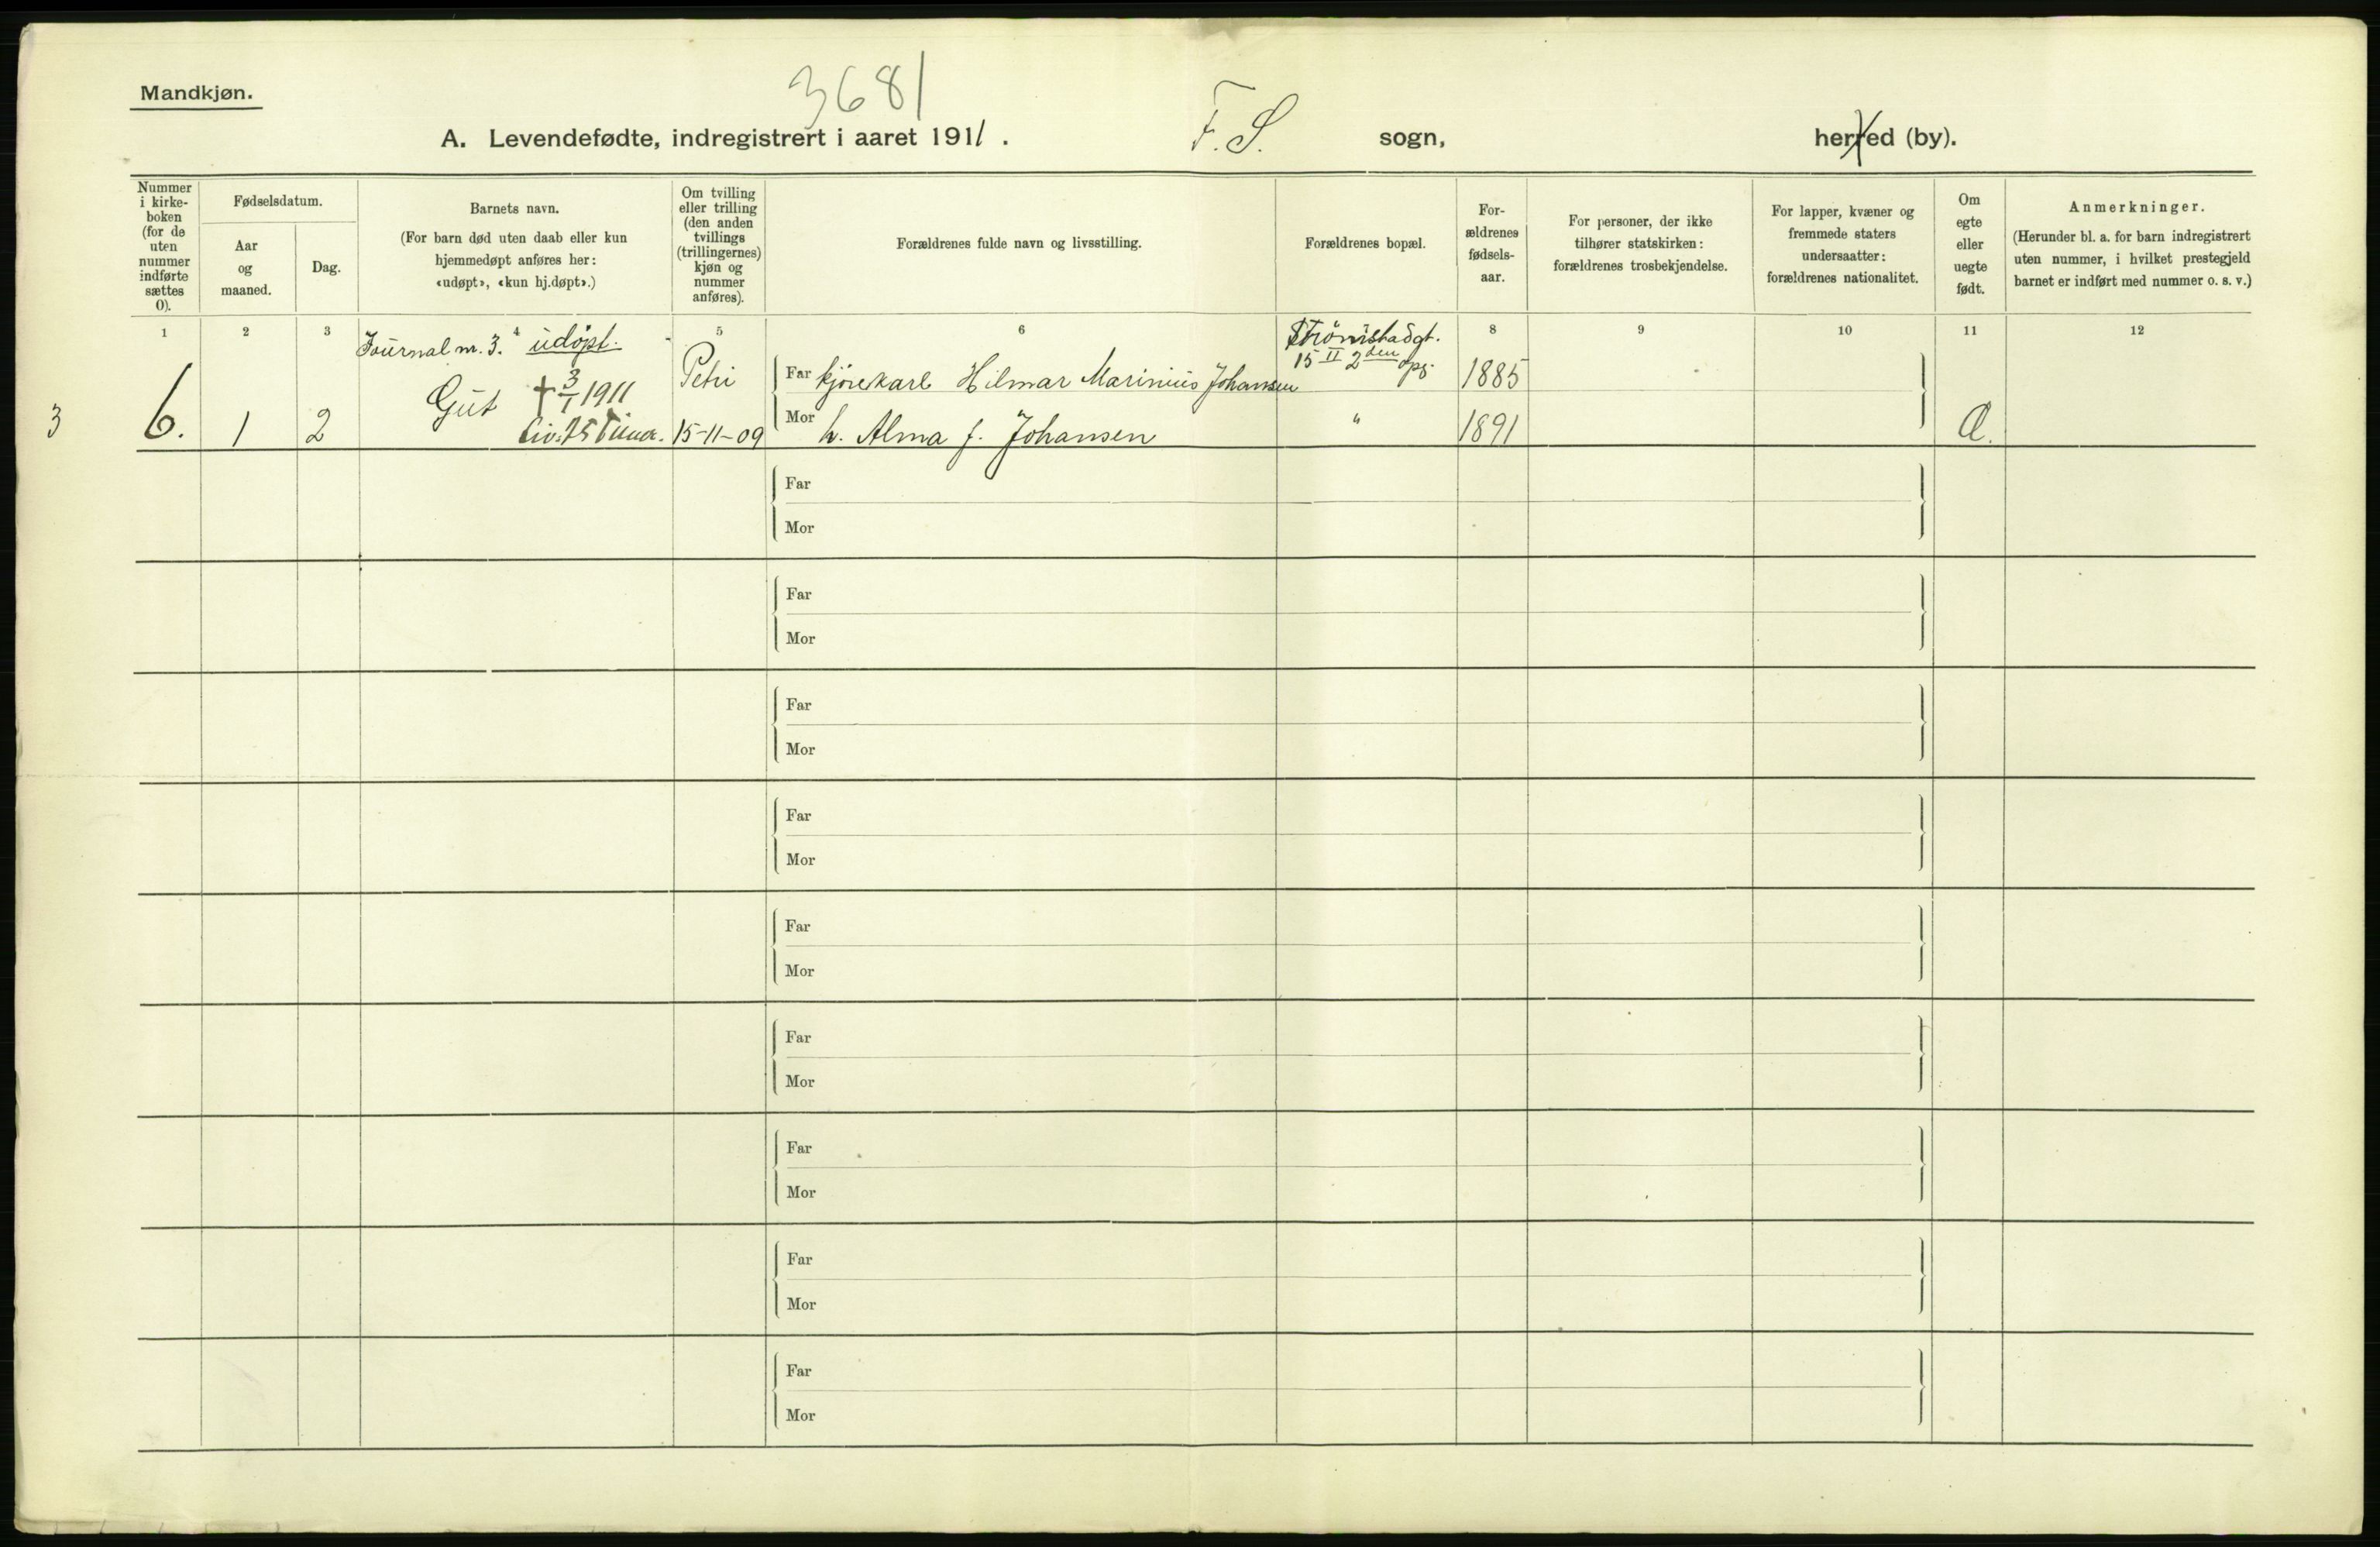 Mandkjøn.
3681
A. Levendefødte, indregistrert i aaret 1911. F. S. sogn, herred (by).
Nummer i kirke-boken (for de uten nummer indførte sættes 0).
Fødselsdatum.
Aar og maaned.
Dag.
Barnets navn.
(For barn død uten daab eller kun
hjemmedøpt anføres her:
«udøpt», «kun hj.døpt».)
Om tvilling
eller trilling
(den anden
tvillings
(trillingernes)
kjøn og
nummer
anføres).
Forældrenes fulde navn og livsstilling.
Forældrenes bopæl.
For-
ældrenes
fødsels-
aar.
For personer, der ikke
tilhører statskirken:
forældrenes trosbekjendelse.
For lapper, kvæner og
fremmede staters
undersaatter:
forældrenes nationalitet.
Om
egte
eller
uegte
født.
Anmerkninger.
(Herunder bl. a. for barn indregistrert
uten nummer, i hvilket prestegjeld
barnet er indført med nummer o. s. v.)
1 2 3 4 5 6 8 9 10 11 12
Journal nr. 3. udøpt.
Strømstadgt.
15 II 2den opg.
3 6. 1 2
Gut † 3/1 1911
Petri
15-11-09
Far kjørekarl Hilmar Marinius Johansen 1885
Mor h. Alma f. Johansen " 1891
Far
Mor
Far
Mor
Far
Mor
Far
Mor
Far
Mor
Far
Mor
Far
Mor
Far
Mor
Far
Mor